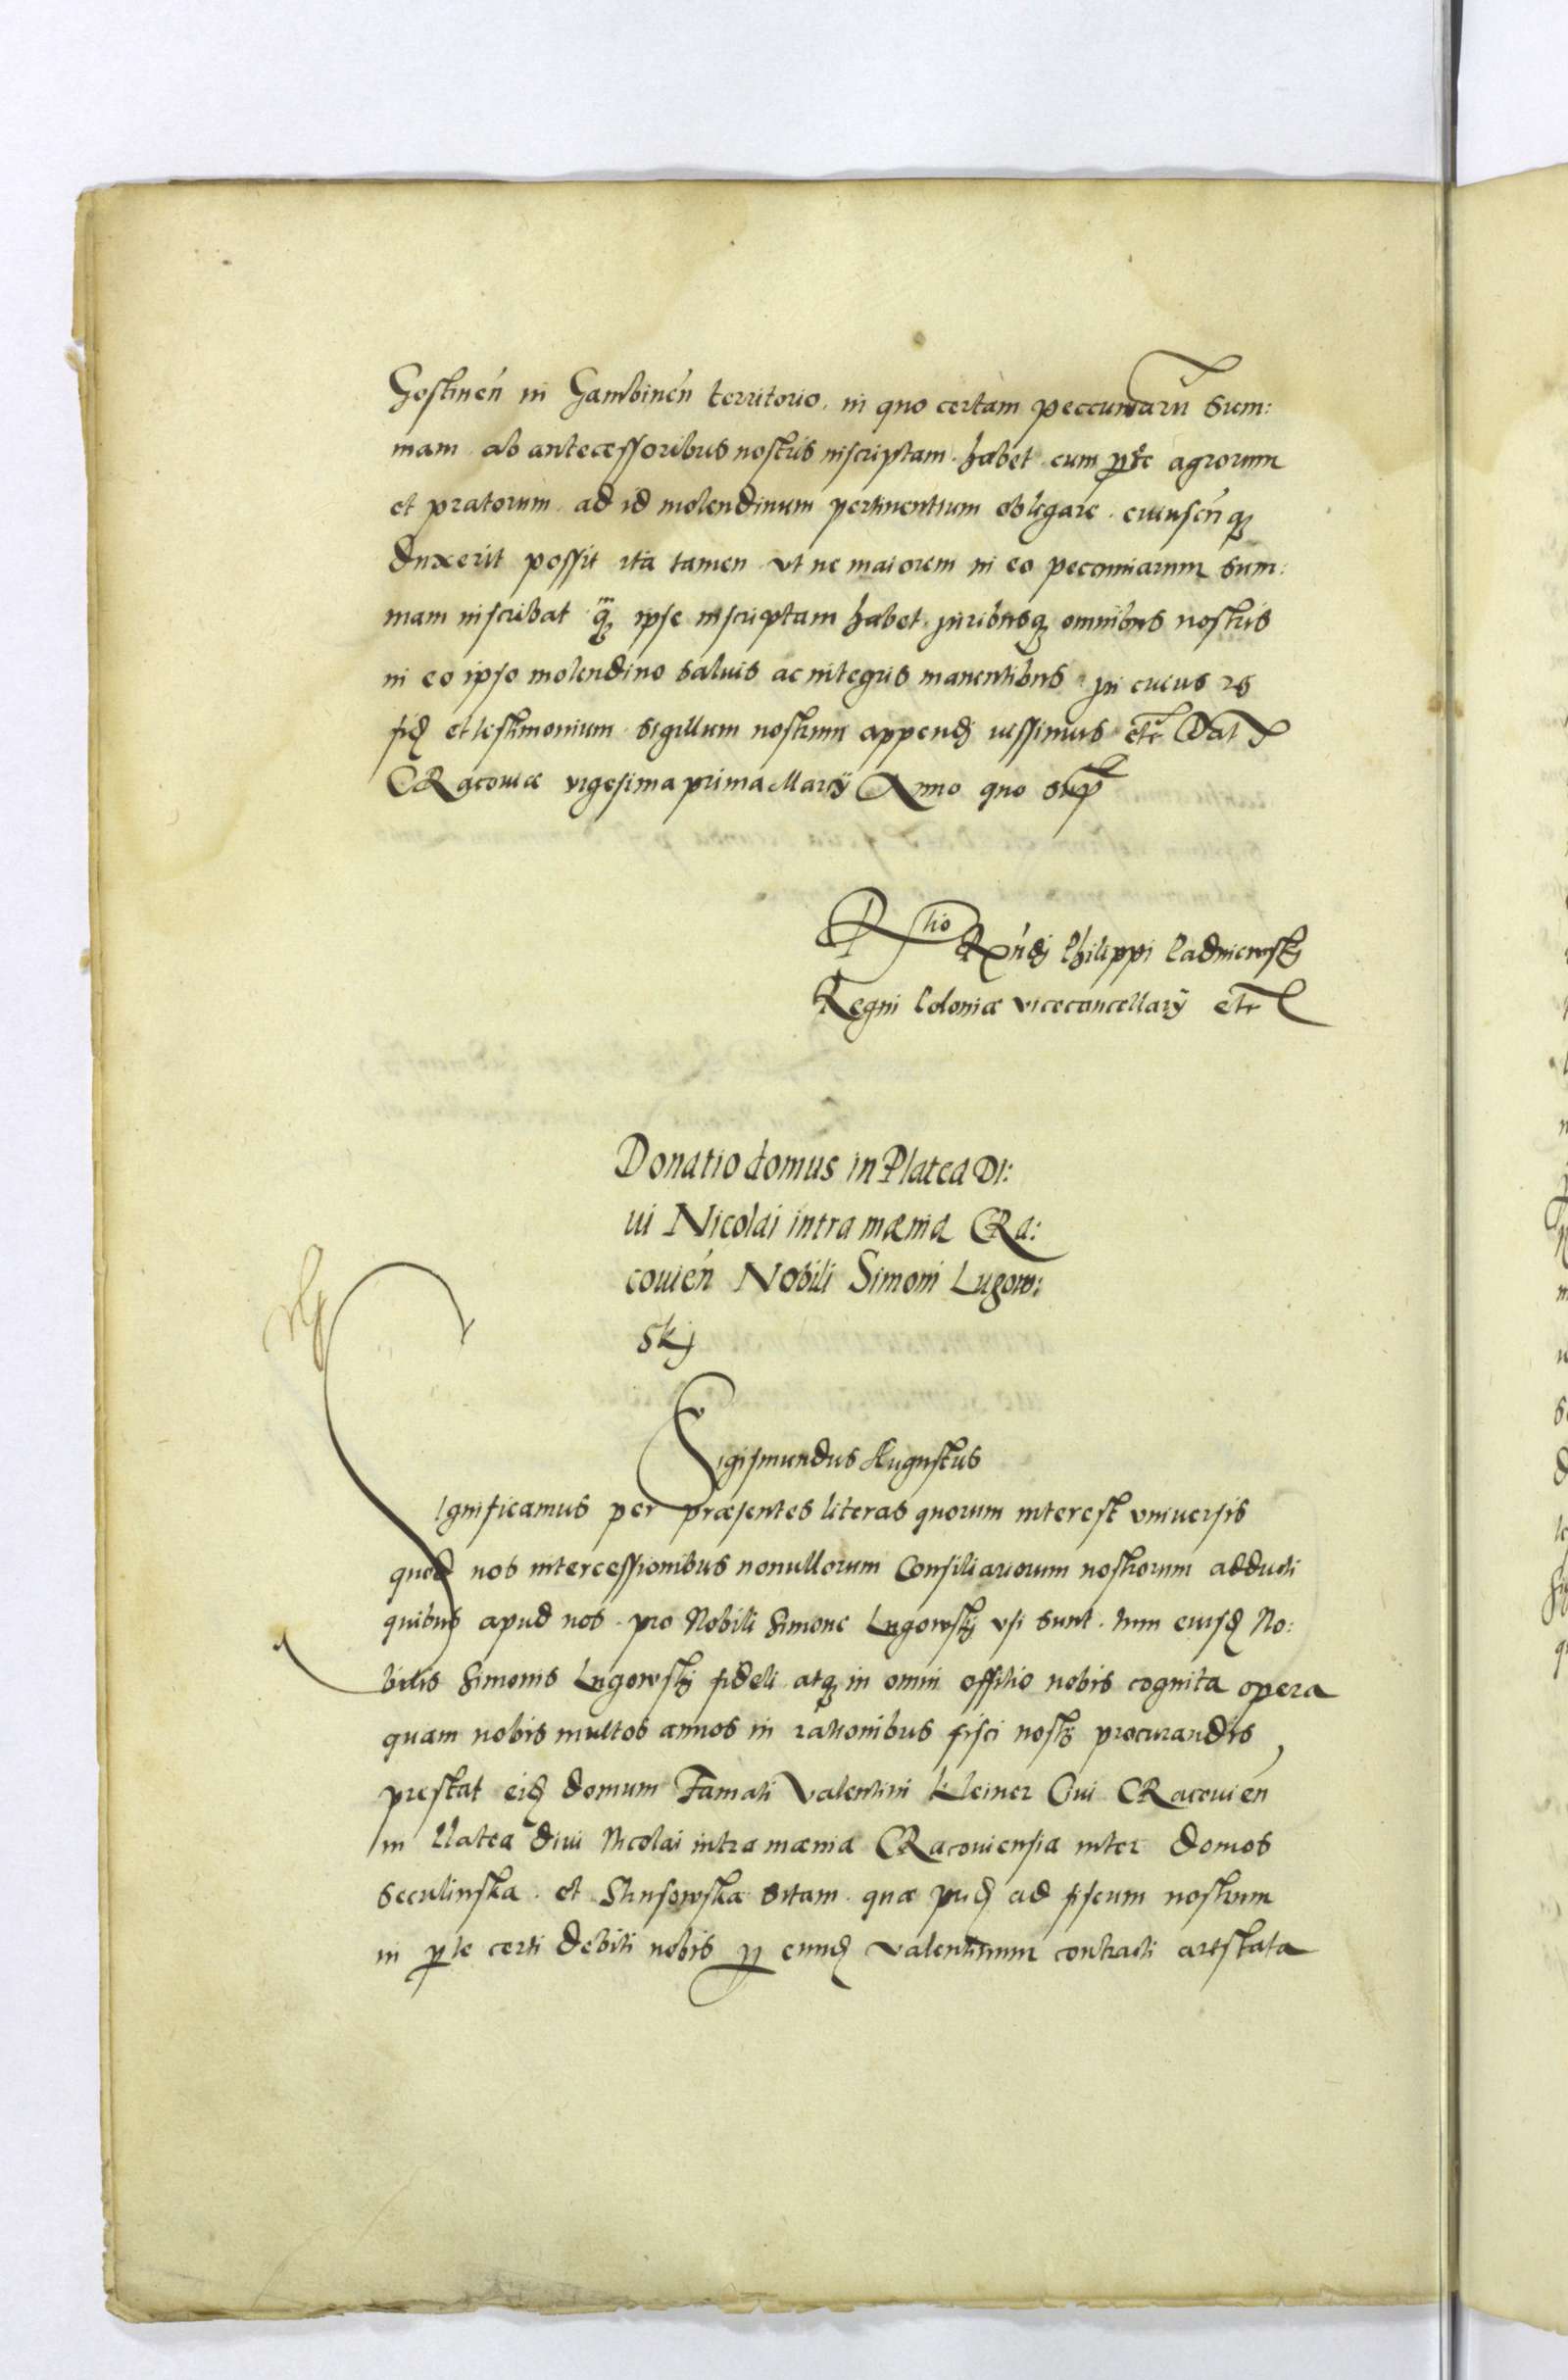 Gostinen̄ in Gambinen̄ territorio. in quo certam peccuniarū sum:
mam ab antecessoribus nostris inscriptam habet cum pꝛte agrorum
et pratorum ad id molendinum pertinentium obligare cuicunꝗ
duxerit possit ita tamen vt ne maiorem in eo peccuniarum sum:
mam inscribat ꝗ̃ ipse inscriptam habet. juribusꝗ omnibus nostris
in eo ipso molendino saluis ac integris manentibus In cuius rei
fidẽ et testimonium sigillum nostrum appendj iussimus etc̃ Dat
CRacouiæ vigesima prima Marcij Anno quo sup̃
Rtio Rñdj Philippi Padniewskj
Regni Poloniæ vicecancellarij etc̃
Donatio domus in Platea Di:
ui Nicolai intra mænia CRa:
couien̄ Nobili Simoni Lugow:
skj
Sigismundus Augustus
Significamus per præsentes literas quorum interest vniuersis
quod nos intercessionibus nonullorum Consiliariorum nostrorum adducti
quibus apud nos pro Nobili Simone Lugowskj vsi sunt. tum eiusdẽ No:
bilis Simonis Lugowskj fideli atꝗ in omni offitio nobis cognita opera
quam nobis multos annos in rationibus fisci nostrj procurandis
prestat eidẽ domum Famati Valentini Kleiner Ciui CRacouien̄
in Platea diui Nicolai intra mænia CRacouiensia inter domos
seculinska et Strusowska sitam quæ pridẽ ad fiscum nostrum
in ꝑte certi debiti nobis ꝑ eundẽ Valentinum contracti arestata